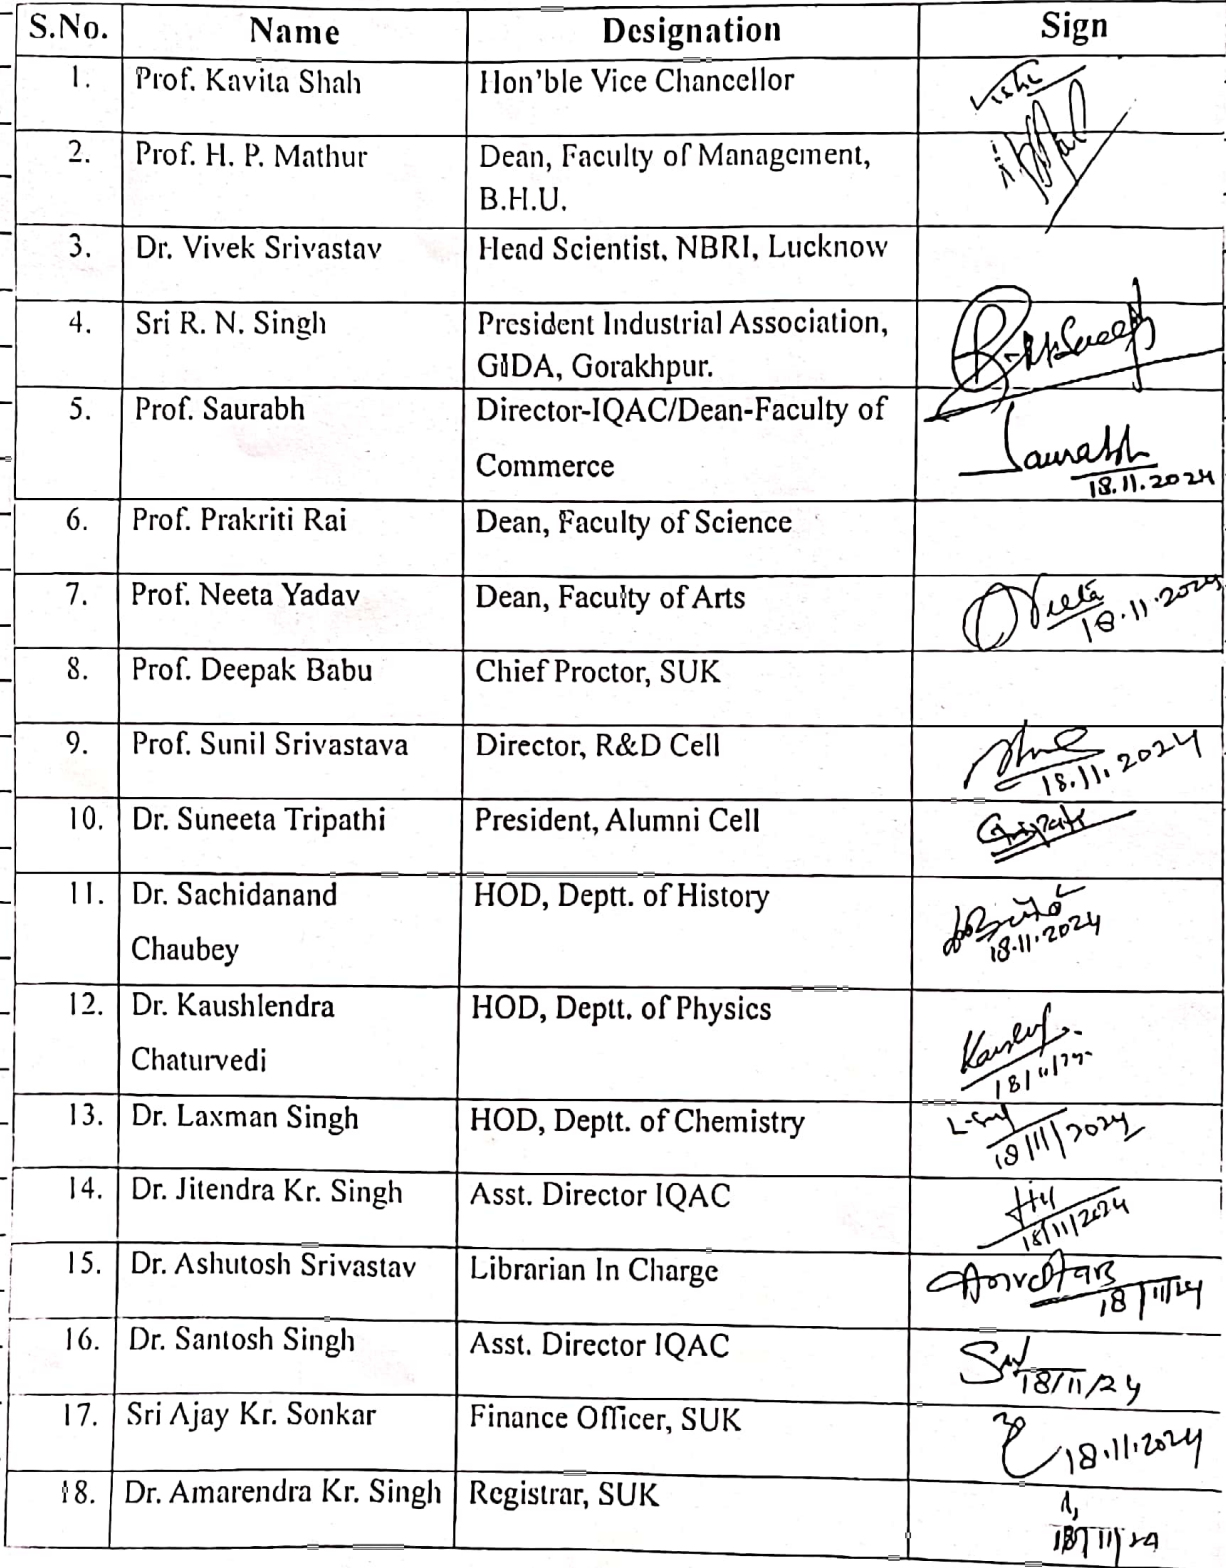 S.No. Name Designation Sign
1. Prof. Kavita Shah Hon'ble Vice Chancellor
2. Prof. H. P. Mathur Dean, Faculty of Management,
B.H.U.
3. Dr. Vivek Srivastav Head Scientist, NBRI, Lucknow
4. Sri R. N. Singh President Industrial Association,
GIDA, Gorakhpur.
5. Prof. Saurabh Director-IQAC/Dean-Faculty of
Commerce Saurabh
18.11.2024
6. Prof. Prakriti Rai Dean, Faculty of Science
7. Prof. Neeta Yadav Dean, Faculty of Arts Neeta
18.11.2024
8. Prof. Deepak Babu Chief Proctor, SUK
9. Prof. Sunil Srivastava Director, R&D Cell
18.11.2024
10. Dr. Suneeta Tripathi President, Alumni Cell
11. Dr. Sachidanand HOD, Deptt. of History
Chaubey 18.11.2024
12. Dr. Kaushlendra HOD, Deptt. of Physics
Chaturvedi
13. Dr. Laxman Singh HOD, Deptt. of Chemistry
18/11/2024
14. Dr. Jitendra Kr. Singh Asst. Director IQAC
18/11/2024
15. Dr. Ashutosh Srivastav Librarian In Charge
18/11/24
16. Dr. Santosh Singh Asst. Director IQAC
18/11/24
17. Sri Ajay Kr. Sonkar Finance Officer, SUK
18.11.2024
18. Dr. Amarendra Kr. Singh Registrar, SUK
18/11/24